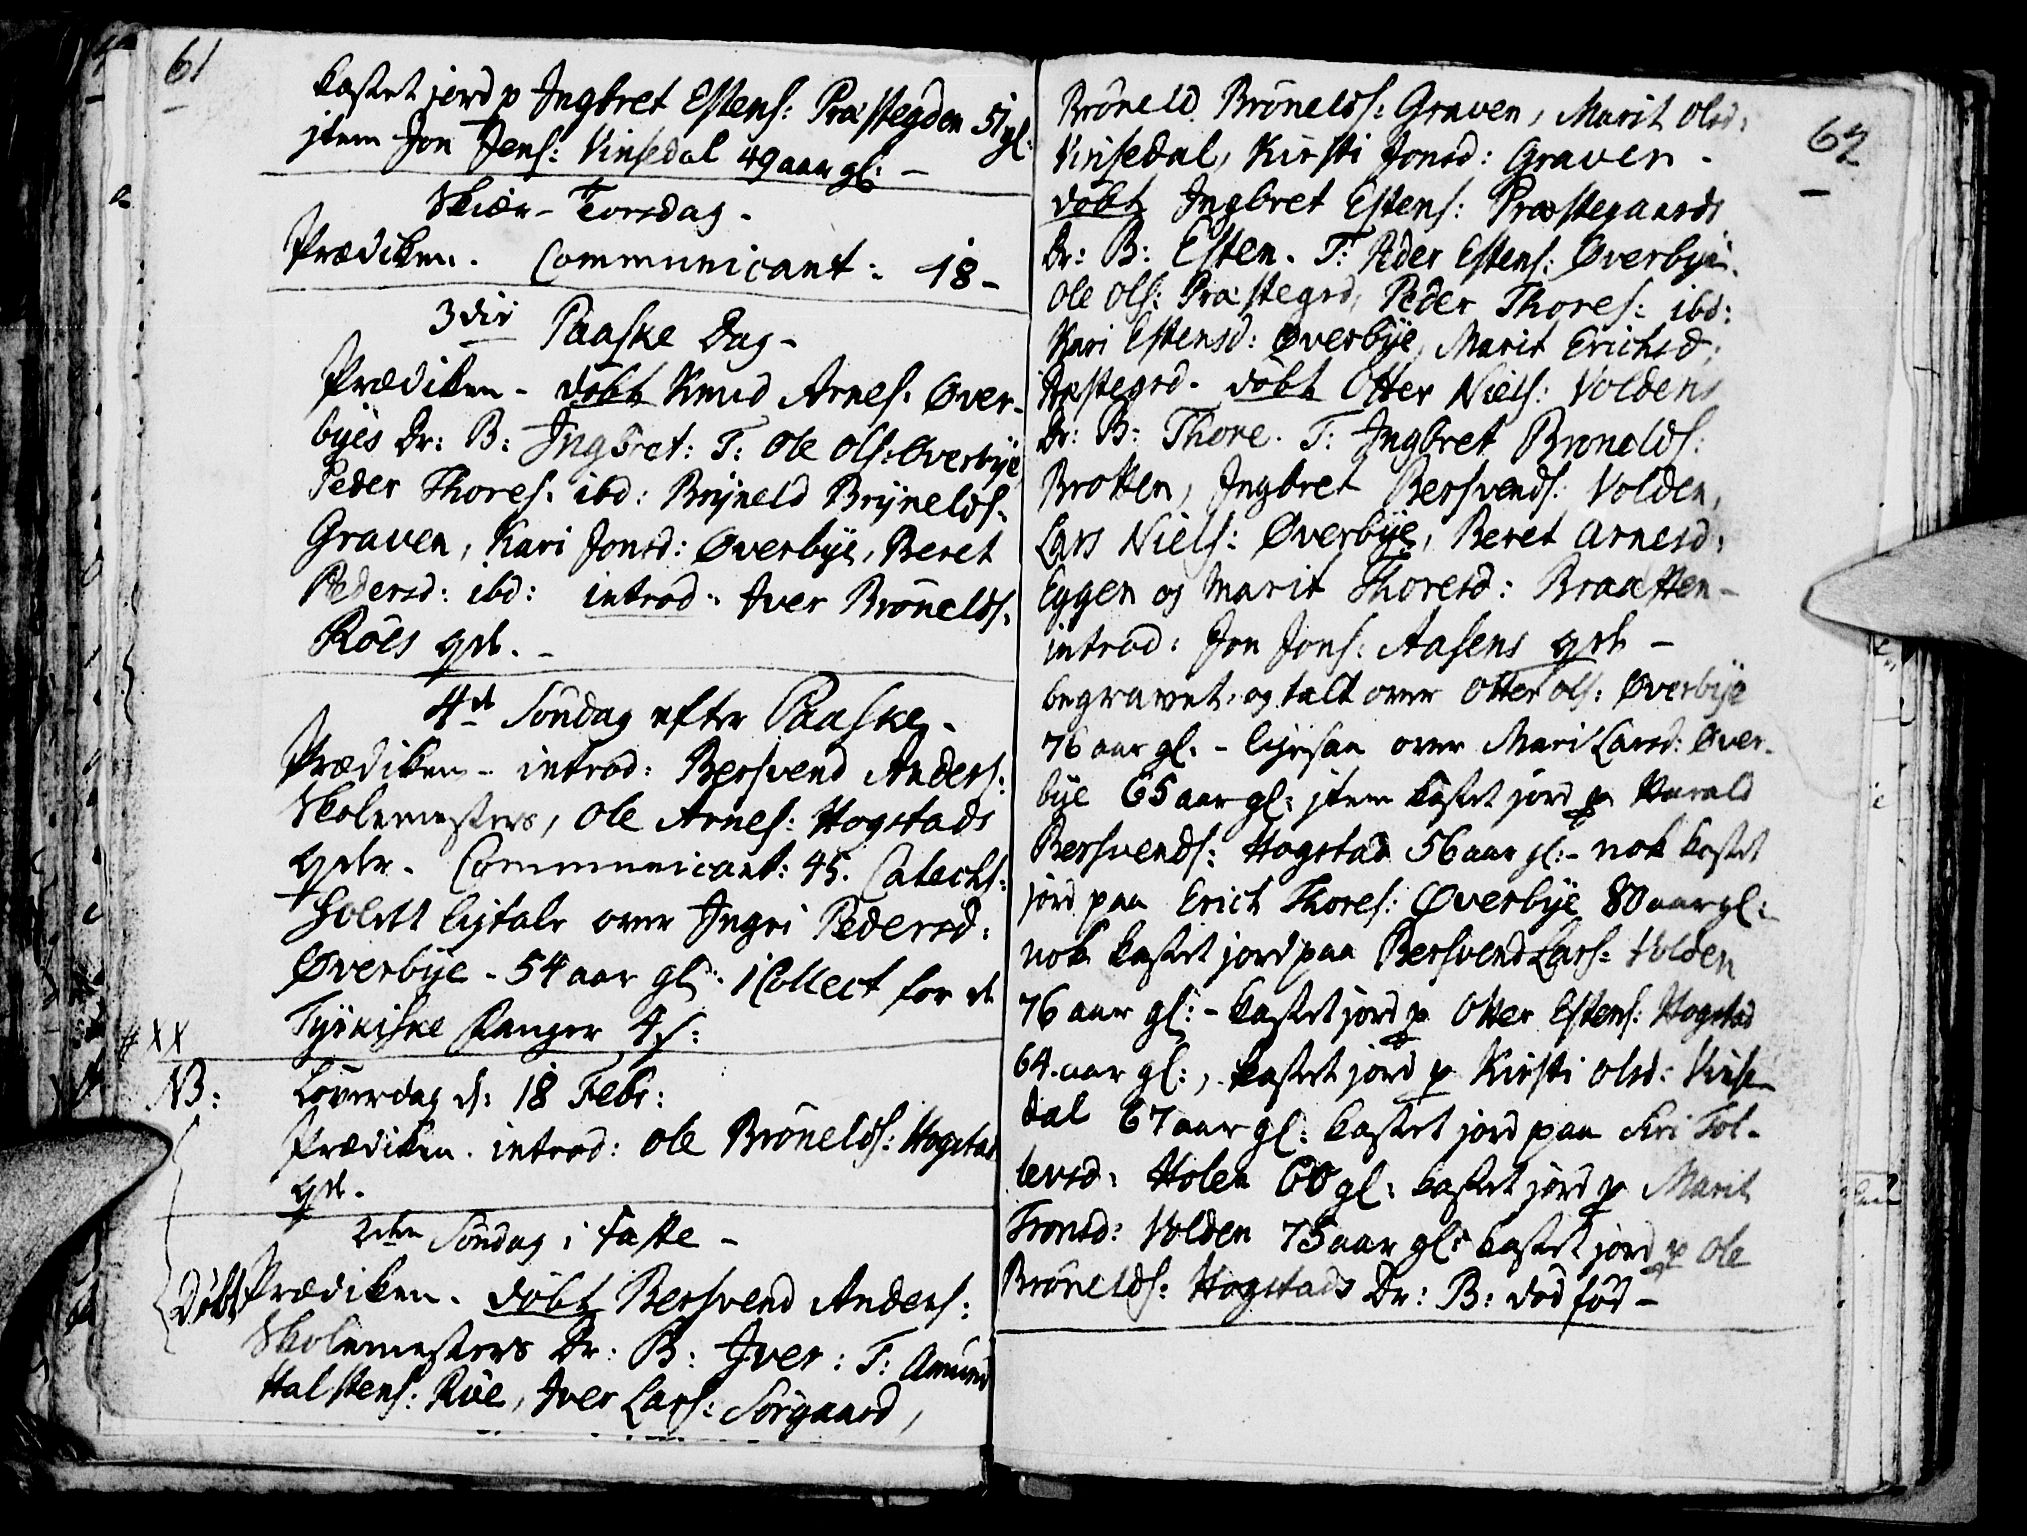 61
kastet jord p Ingbret Estens: Præstegden 51 gl:
jtem Jon Jens: Vinsedal 49 aar gl: -
Skiær-Torsdag -
Prædiken. Communicant: 18 -
3die Paaske Dag -
Prædiken - döbt Knud Arnes: Over-
byes Dr: B: Ingbret: T: Ole Ols: Overbÿe
Peder Thores: ibd: Brÿneld Brÿnelds:
Graven, Kari Jonsd: Øverbÿe, Beret
Pedersd: ibd: introd: Iver Brönelds:
Röes qvl. -
4de Söndag efter Paaske -
Prædiken - introd: Bersvend Anders:
Skolemesters, Ole Arnes: Hogstads
qvlr. Communicant: 45. Catechs:
holdt ligtale over Ingri Pedersd:
Øverbÿe - 54 aar gl: 1 Collect for de
Tÿrkiske Fanger 4 s:
# XX
NB: Löverdag d: 18 Febr:
Prædiken. introd: Ole Brönelds: Hogstad
qvl.
2den Söndag i Faste -
Döbt Prædiken. döbt Bersvend Anders:
Skolemesters Dr: B: Iver: T: Amund
Halstens: Röe, Iver Lars: Sörgaard,
62
Bröneld Brönelds: Graven, Marit Olsd:
Vinsedal, Kirsti Jonsd: Graven -
döbt Ingbret Estens: Præstegaards
Dr: B: Esten. T: Peder Estens: Øverbÿe
Ole Ols: Præstegrd, Peder Thores: ibd:
Kari Estensd: Øverbÿe, Marit Erichsd:
Præstegrd - döbt Otter Niels: Voldens
Dr: B: Thore. T: Ingbret Bronelds:
Brotten, Ingbret Bersvends: Volden,
Lars Niels: Øverbÿe, Beret Arnesd:
Eggen og Marit Thoresd: Braatten -
introd: Jon Jons: Aasens qvl -
begravet, og talt over Otter Ols: Øverbÿe
76 aar gl: - ligesaa over Mari Larsd: Øver-
bÿe 65 aar gl: jtem kastet jord p Harald
Bersvends: Hogstad 56 aar gl: - nok kastet
jord paa Erich Thores: Øverbÿe 80 aar gl:
nok kastet jord paa Bersvend Lars: Volden
76 aar gl: - kastet jord p Otter Estens: Hogstad
64 aar gl:, kastet jord p Kirsti Olsd: Vinse-
dal 67 aar gl: kastet jord paa Siri Tol-
levsd: Holen 60 gl: kastet jord p Marit
Tronsd: Volden 75 aar gl: kastet jord p Ole
Brönelds: Hogstads Dr: B: död föd -